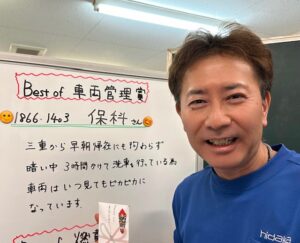 Best of 車両管理賞
1866.1403 保科さん
三重から早朝帰庄にも拘わらず
暗い中 3時間かけて洗車を行っている為
車両はいつ見てもピカピカに
なっています。
Best of
hidaka